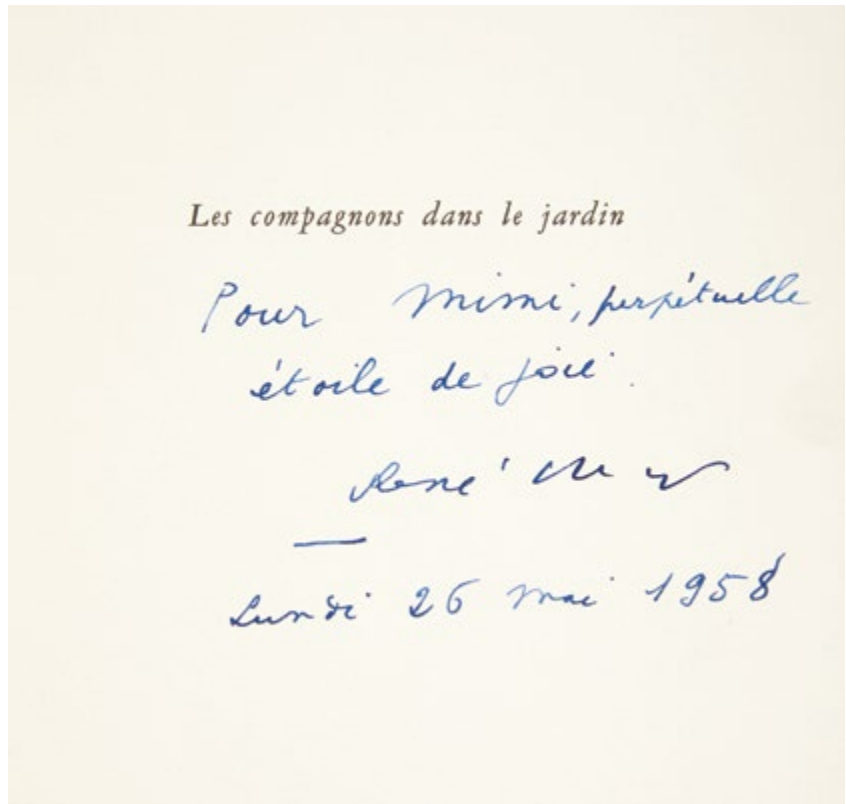 Les compagnons dans le jardin
Pour Mimi, perpétuelle
étoile de joie.
René Char
Lundi 26 mai 1958